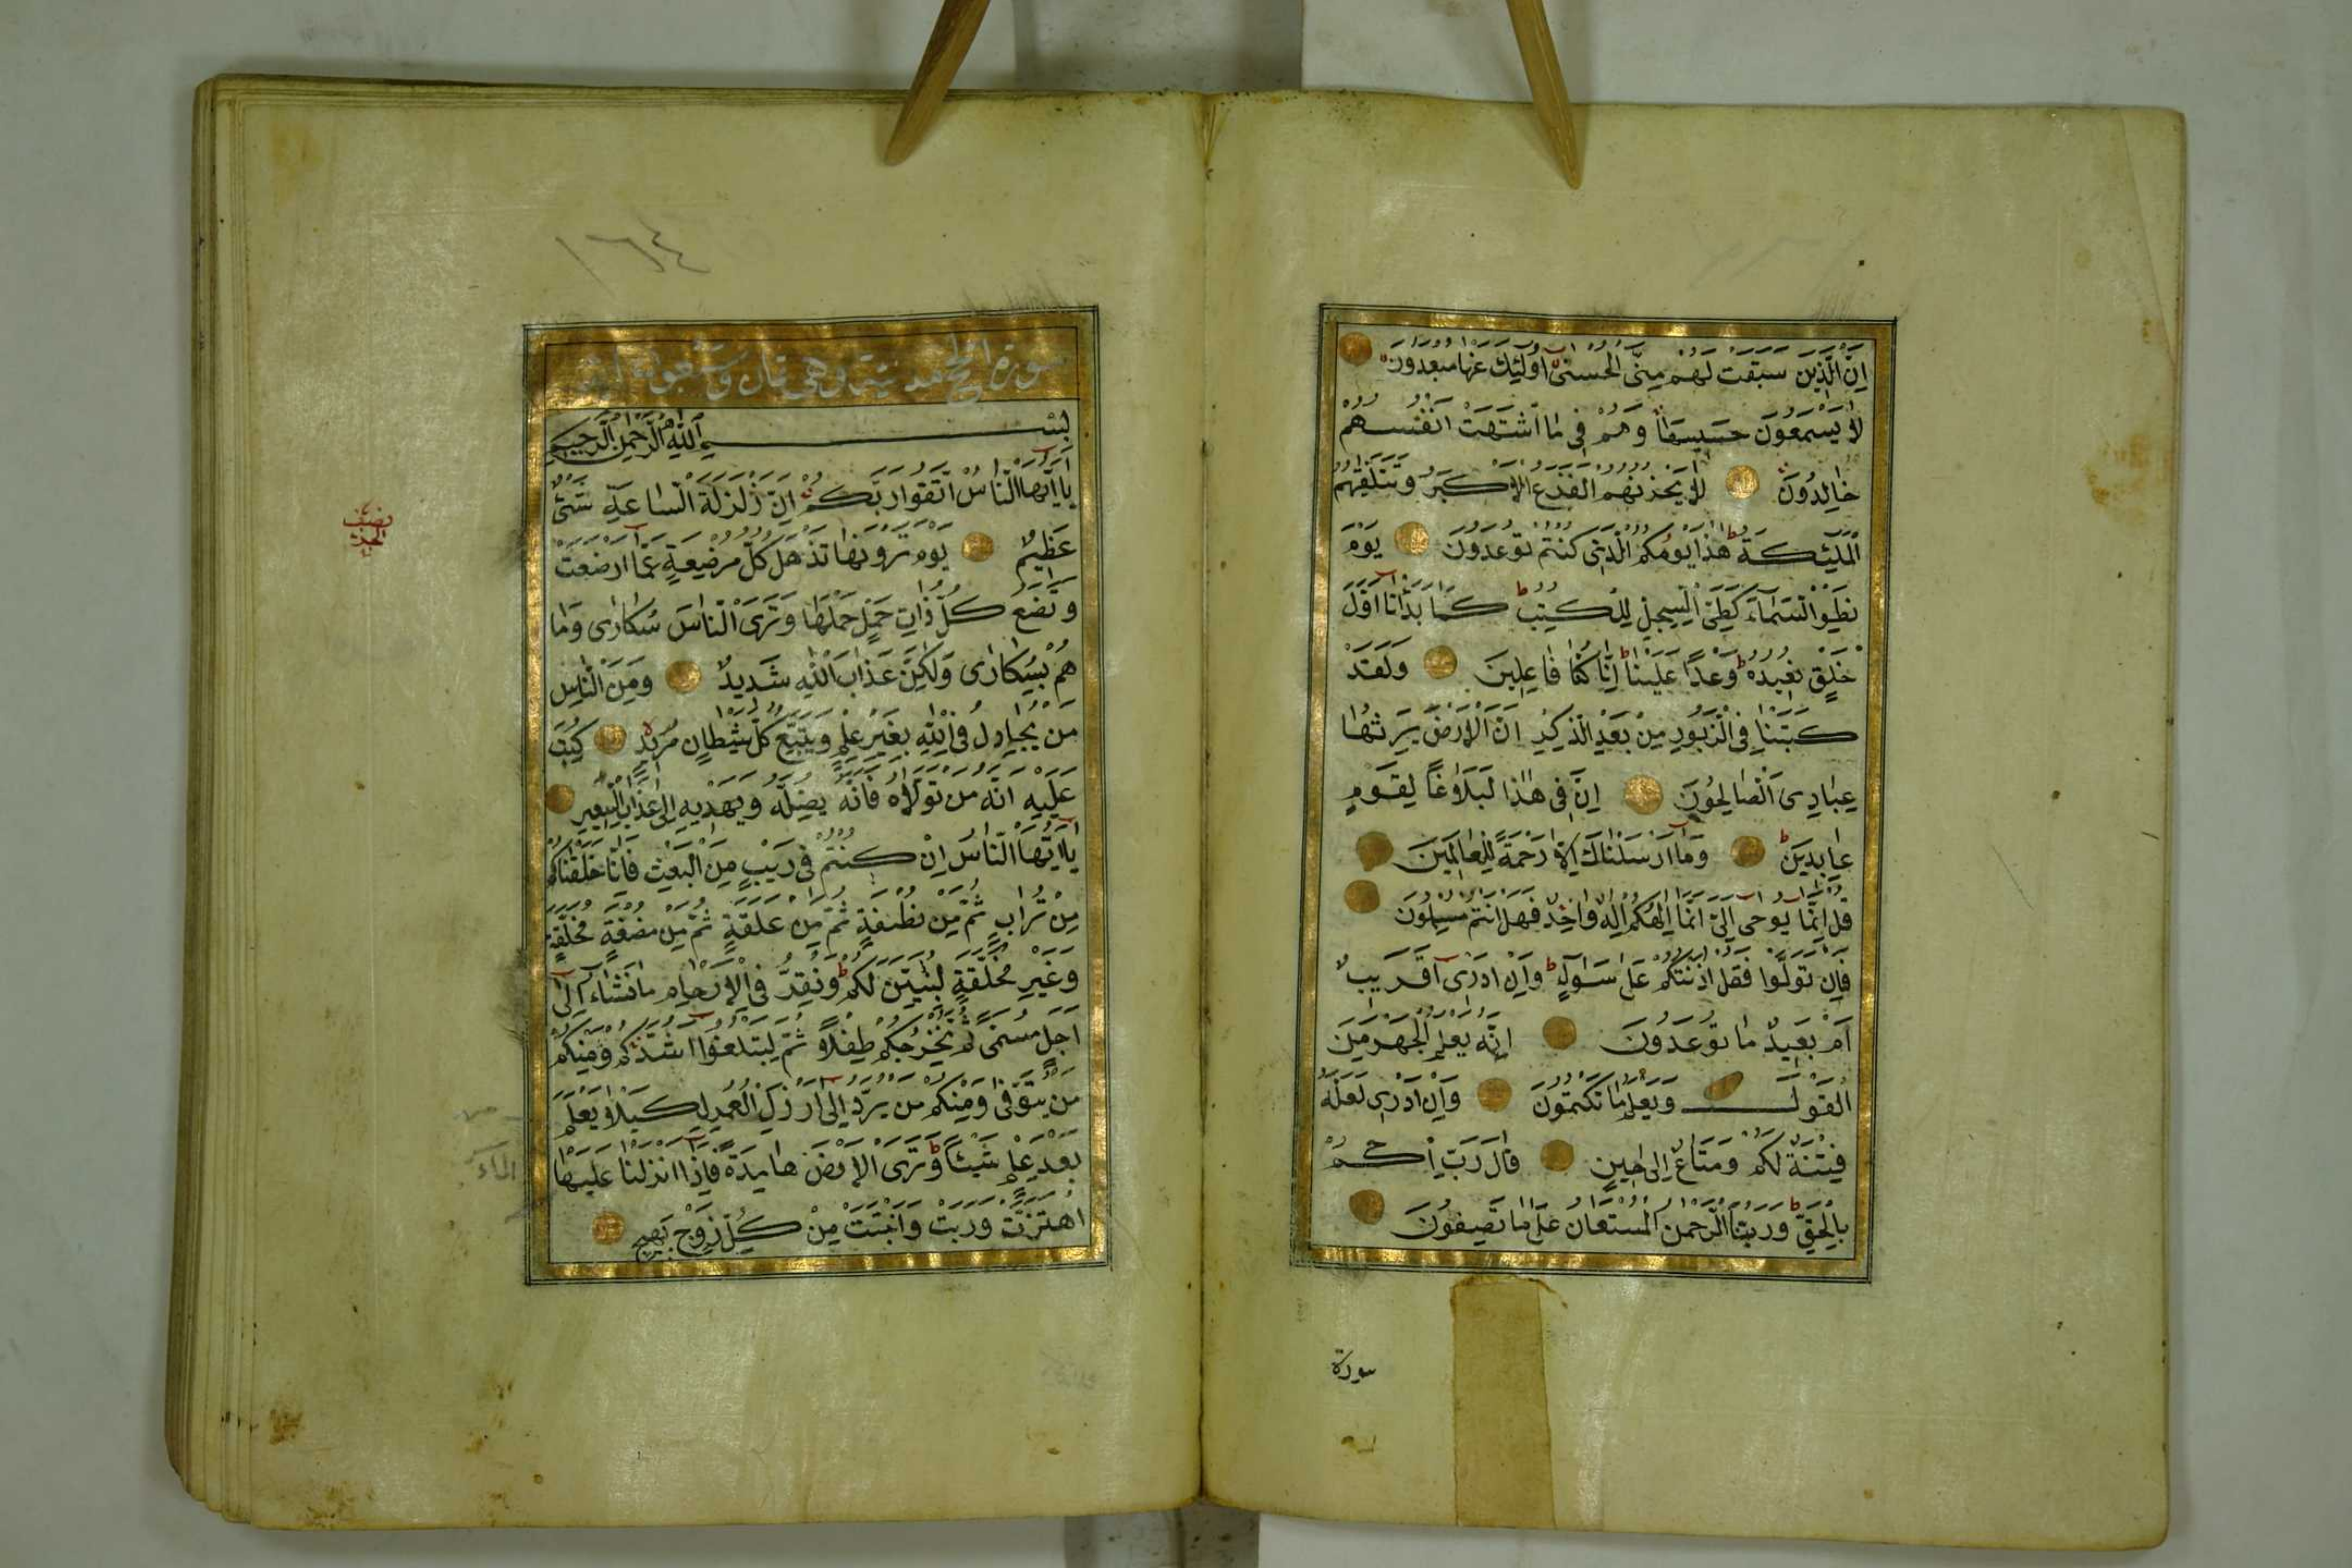 اِنَّ الَّذِينَ سَبَقَتْ لَهُمْ مِنَّى الْحُسْنٰى اُولٰئِكَ عَنْهَا مُبْعَدُونَ
لَا يَسْمَعُونَ حَسِيسَهَا وَهُمْ فِي مَا اشْتَهَتْ اَنْفُسُهُمْ
خَالِدُونَ لَا يَحْزُنُهُمُ الْفَزَعُ الْاَكْبَرُ وَتَتَلَقّٰيهُمُ
الْمَلٰئِكَةُ هٰذَا يَوْمُكُمُ الَّذِي كُنْتُمْ تُوعَدُونَ يَوْمَ
نَطْوِي السَّمَاءَ كَطَيِّ السِّجِلِّ لِلْكُتُبِ كَمَا بَدَاْنَا اَوَّلَ
خَلْقٍ نُعِيدُهُ وَعْدًا عَلَيْنَا اِنَّا كُنَّا فَاعِلِينَ وَلَقَدْ
كَتَبْنَا فِي الزَّبُورِ مِنْ بَعْدِ الذِّكْرِ اَنَّ الْاَرْضَ يَرِثُهَا
عِبَادِيَ الصَّالِحُونَ اِنَّ فِي هٰذَا لَبَلَاغًا لِقَوْمٍ
عَابِدِينَ وَمَا اَرْسَلْنَاكَ اِلَّا رَحْمَةً لِلْعَالَمِينَ
قُلْ اِنَّمَا يُوحٰى اِلَيَّ اَنَّمَا اِلٰهُكُمْ اِلٰهٌ وَاحِدٌ فَهَلْ اَنْتُمْ مُسْلِمُونَ
فَاِنْ تَوَلَّوْا فَقُلْ اٰذَنْتُكُمْ عَلٰى سَوَاءٍ وَاِنْ اَدْرِي اَقَرِيبٌ
اَمْ بَعِيدٌ مَا تُوعَدُونَ اِنَّهُ يَعْلَمُ الْجَهْرَ مِنَ
الْقَوْلِ وَيَعْلَمُ مَا تَكْتُمُونَ وَاِنْ اَدْرِي لَعَلَّهُ
فِتْنَةٌ لَكُمْ وَمَتَاعٌ اِلٰى حِينٍ قَالَ رَبِّ احْكُمْ
بِالْحَقِّ وَرَبُّنَا الرَّحْمٰنُ الْمُسْتَعَانُ عَلٰى مَا تَصِفُونَ
سورة
١٦٤
سورة الحج مدنية وهي ثمان وسبعون اية
بِسْمِ اللّٰهِ الرَّحْمٰنِ الرَّحِيمِ
يَا اَيُّهَا النَّاسُ اتَّقُوا رَبَّكُمْ اِنَّ زَلْزَلَةَ السَّاعَةِ شَيْءٌ
عَظِيمٌ يَوْمَ تَرَوْنَهَا تَذْهَلُ كُلُّ مُرْضِعَةٍ عَمَّا اَرْضَعَتْ
وَتَضَعُ كُلُّ ذَاتِ حَمْلٍ حَمْلَهَا وَتَرَى النَّاسَ سُكَارٰى وَمَا
هُمْ بِسُكَارٰى وَلٰكِنَّ عَذَابَ اللّٰهِ شَدِيدٌ وَمِنَ النَّاسِ
مَنْ يُجَادِلُ فِي اللّٰهِ بِغَيْرِ عِلْمٍ وَيَتَّبِعُ كُلَّ شَيْطَانٍ مَرِيدٍ كُتِبَ
عَلَيْهِ اَنَّهُ مَنْ تَوَلَّاهُ فَاَنَّهُ يُضِلُّهُ وَيَهْدِيهِ اِلٰى عَذَابِ السَّعِيرِ
يَا اَيُّهَا النَّاسُ اِنْ كُنْتُمْ فِي رَيْبٍ مِنَ الْبَعْثِ فَاِنَّا خَلَقْنَاكُمْ
مِنْ تُرَابٍ ثُمَّ مِنْ نُطْفَةٍ ثُمَّ مِنْ عَلَقَةٍ ثُمَّ مِنْ مُضْغَةٍ مُخَلَّقَةٍ
وَغَيْرِ مُخَلَّقَةٍ لِنُبَيِّنَ لَكُمْ وَنُقِرُّ فِي الْاَرْحَامِ مَا نَشَاءُ اِلٰى
اَجَلٍ مُسَمًّى ثُمَّ نُخْرِجُكُمْ طِفْلًا ثُمَّ لِتَبْلُغُوا اَشُدَّكُمْ وَمِنْكُمْ
مَنْ يُتَوَفّٰى وَمِنْكُمْ مَنْ يُرَدُّ اِلٰى اَرْذَلِ الْعُمُرِ لِكَيْلَا يَعْلَمَ
بَعْدِ عِلْمٍ شَيْئًا وَتَرَى الْاَرْضَ هَامِدَةً فَاِذَا اَنْزَلْنَا عَلَيْهَا
الماء
اهْتَزَّتْ وَرَبَتْ وَاَنْبَتَتْ مِنْ كُلِّ زَوْجٍ بَهِيجٍ
نصف
الحزب